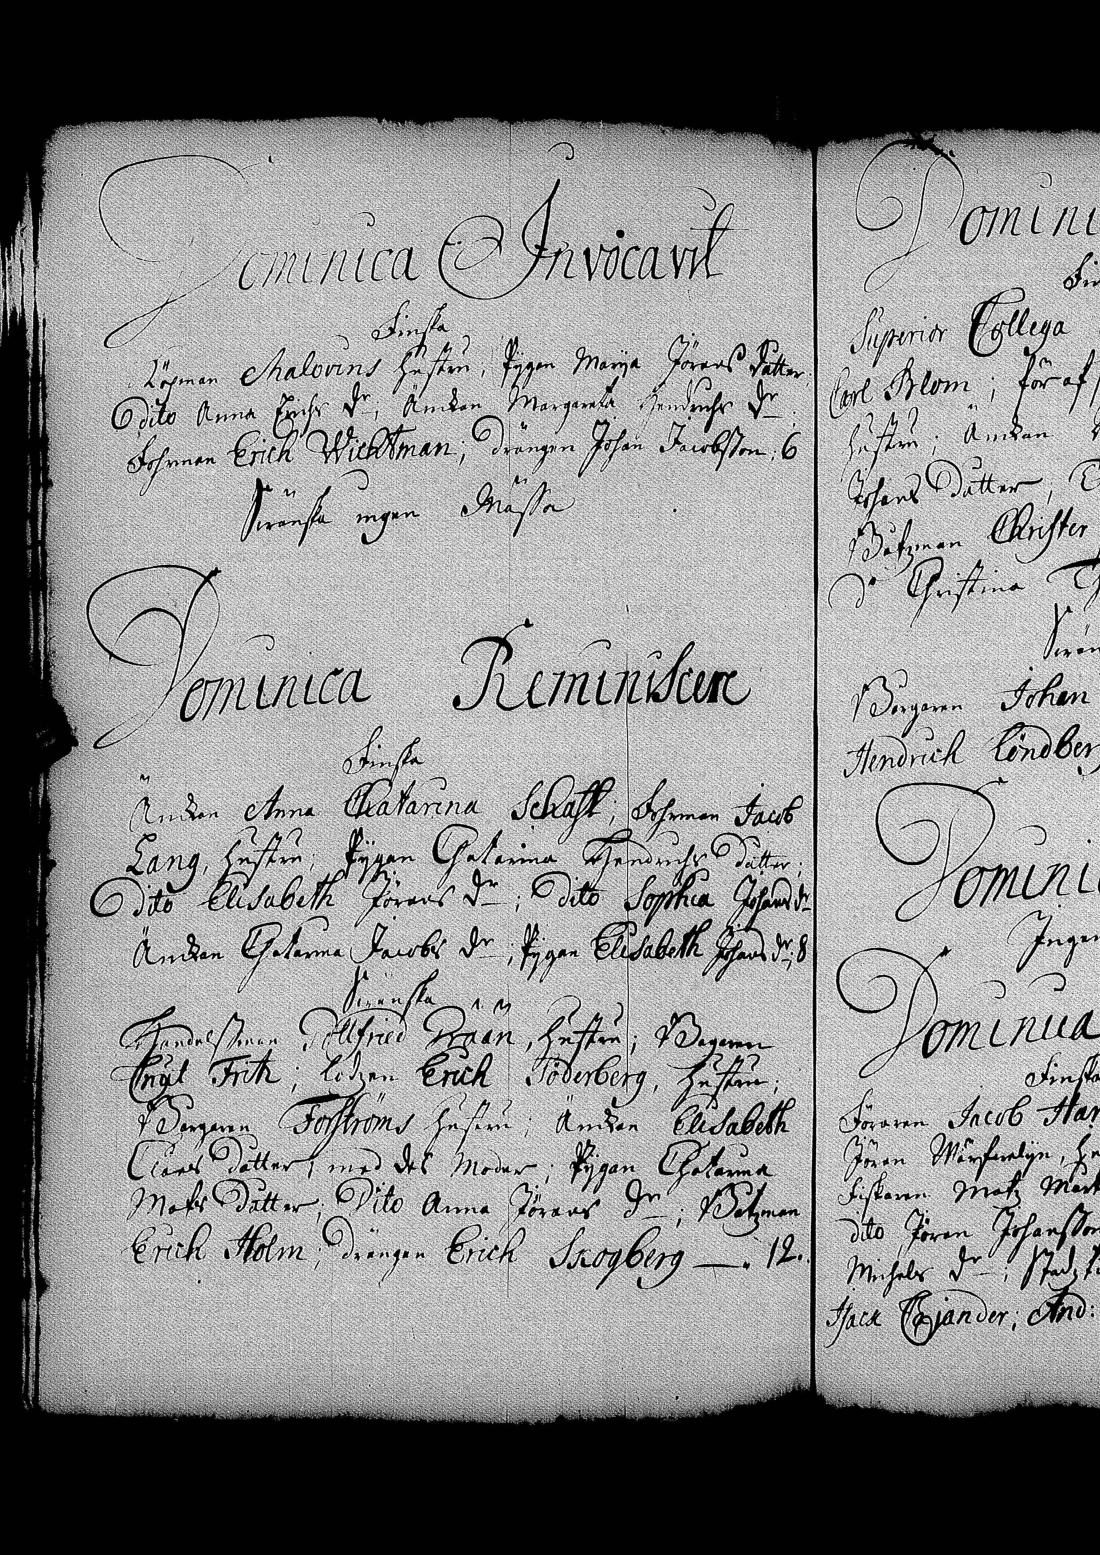 Dominica Invocavit
Finska
Köpman Malovins hustru; Pygan Marija Jörans Datter;
Dito Anna Erichs Dr; Änckan Margareta Hendrichs Dr
Fohrman Erich Wichtman; drängen Johan Jacobsson; 6
Swänska ingen Mässa
Dominica Reminiscere
Finska
Änckan Anna Chatarina Schäft; Fohrman Jacob
Lang, hustru; Pygan Chatarina Hendrichs Datter;
Dito Elisabeth Jörans Dr; Dito Sophia Johans dr
Änckan Chatarina Jacobs Dr; Pygan Elisabeth Johans dr; 8
Swänska
Handelsman Gottfried Braän, hustru; Borgaren
Engl Frik; Lodzen Erich Söderberg, hustru;
Borgaren Forströms hustru; Änckan Elisabeth
Claes Datter, med des Moder; Pygan Chatarina
Mats Datter; Dito Anna Jörans Dr; Båtzman
Erich Holm; drängen Erich Skogberg 12.
Domini
Fin
Superior Collega
Carl Blom; för af
hustru; Änckan
Johans Datter;
Båtzman Christer
Do Christina
Swän
Borgaren Johan
Hendrich Lindber
Domini
Ingen
Dominica
Finska
Föraren Jacob Har
Jören Mårs
Fiskaren Matz Mart
dito Jören Johansson
Michels Dr; Stadz
Isack Cajander; And: